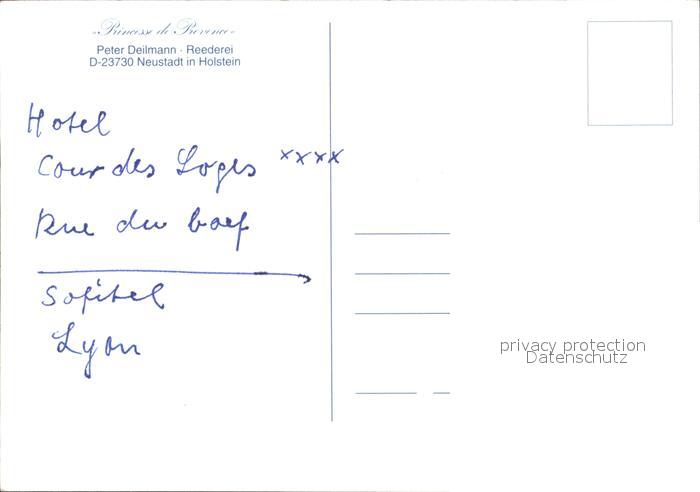 »Princesse de Provence«
Peter Deilmann · Reederei
D-23730 Neustadt in Holstein
Hotel
Cour des Loges xxxx
Rue du boef
Sofitel
Lyon
privacy protection
Datenschutz